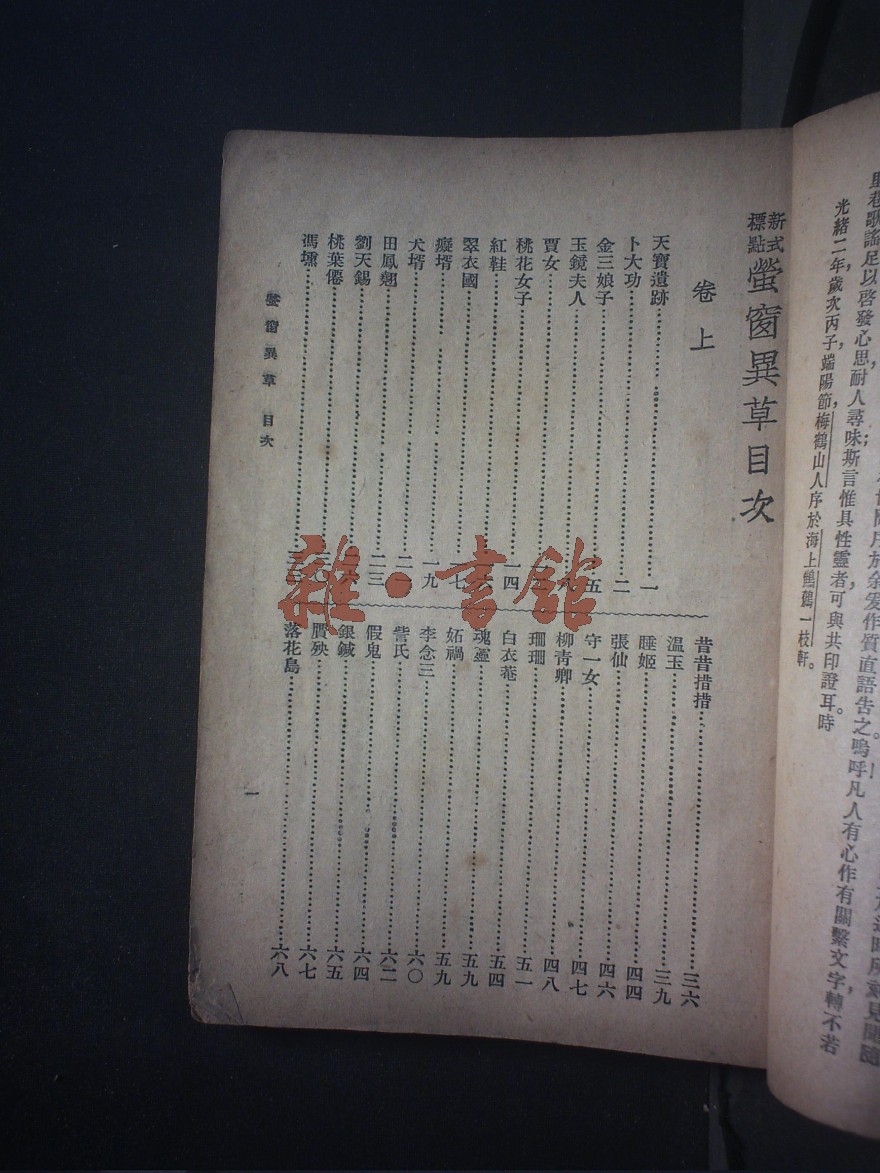 里巷歌謠足以啓發心思耐人尋味斯言惟具性靈者可與共印證耳時
光緒二年歲次丙子端陽節梅鶴山人序於海上鷦鷯一枝軒。
新式標點螢窗異草目次
卷上
天寶遺跡 一
卜大功 二
金三娘子 五
玉鏡夫人
賈女
桃花女子 一四
紅鞋
翠衣國 一七
癡壻 一九
犬壻
田鳳翹 二三
劉天錫
桃葉僊
馮壎
昔昔措措 三六
溫玉 三九
睡姬 四四
張仙 四六
守一女 四七
柳青卿 四八
珊珊 五一
白衣菴 五四
魂靈 五九
妬禍 五九
李念三 六〇
訾氏 六二
假鬼 六四
銀鍼 六五
贋殃 六七
落花島 六八
螢窗異草 目次
一
雜·書館